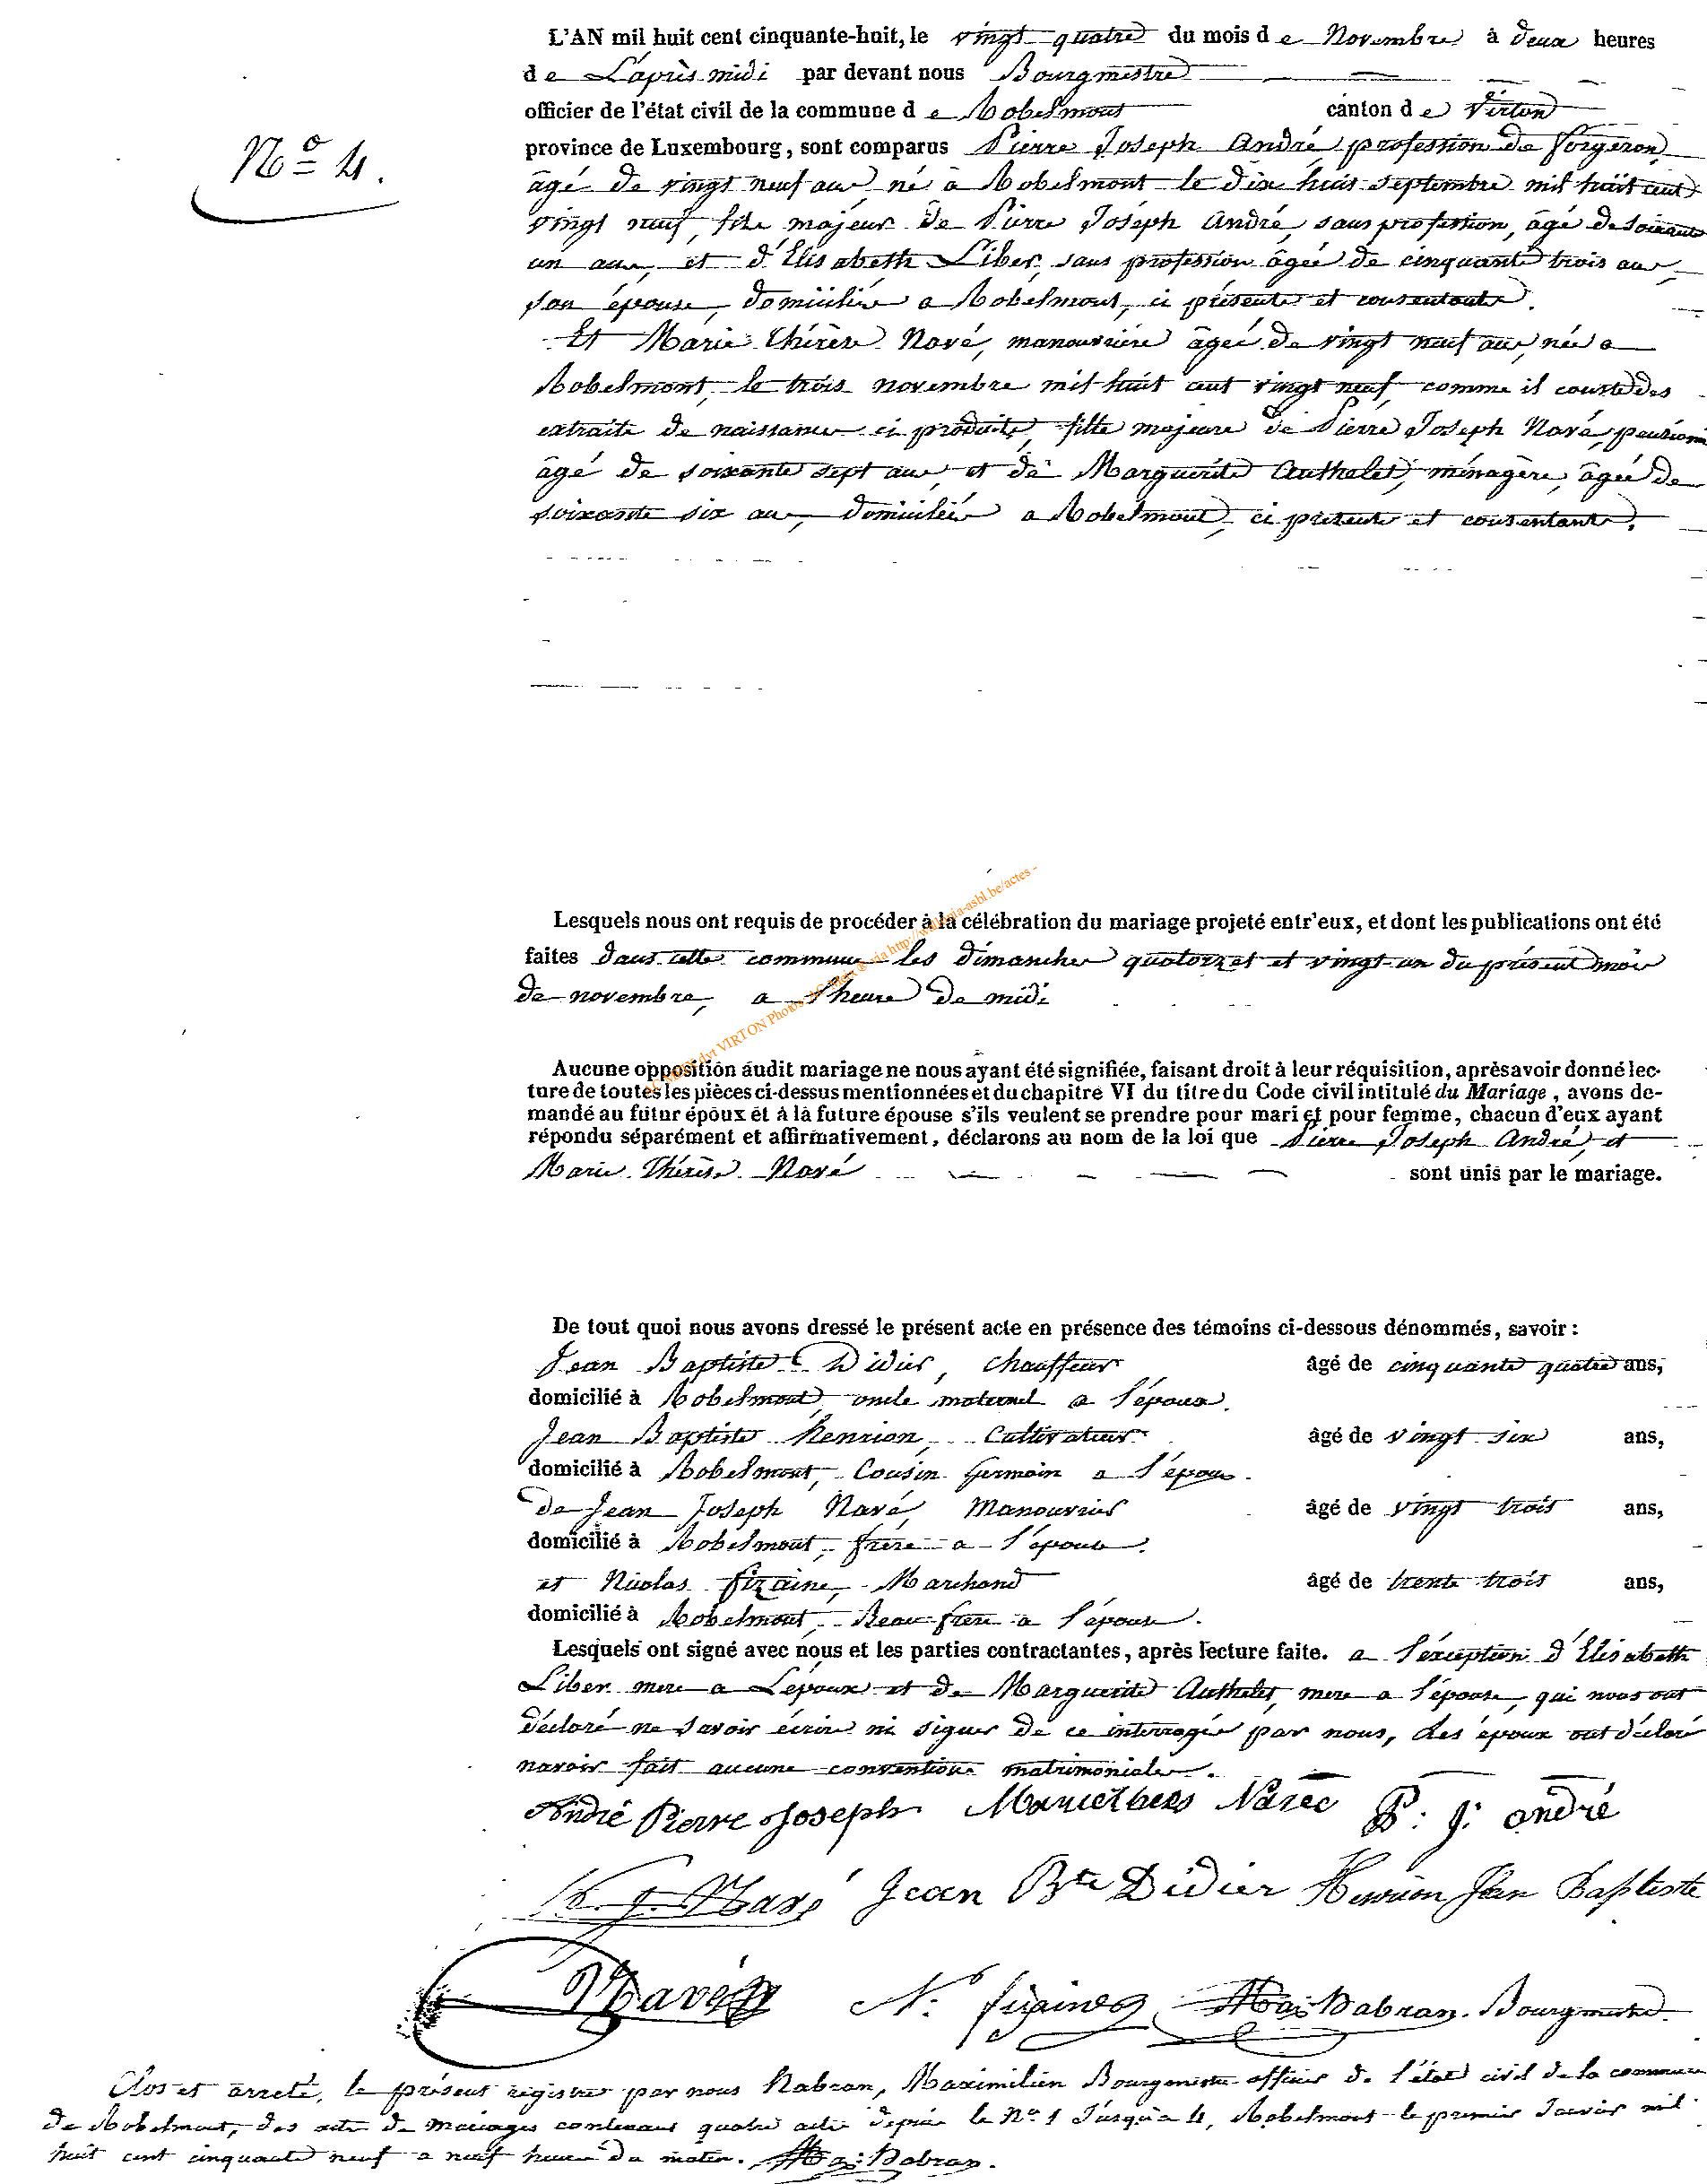 L'AN mil huit cent cinquante-huit, le vingt quatre du mois de Novembre à deux heures
de L'après midi par devant nous Bourgmestre
officier de l'état civil de la commune de Robelmont canton de Virton
province de Luxembourg, sont comparus Pierre Joseph André, profession de forgeron,
N° 4.
âgé de vingt neuf ans, né à Robelmont le dix huit septembre mil huit cent
vingt neuf, fils majeur de Pierre Joseph André, sans profession, âgé de soixante
un ans, et d'Elisabeth Liber, sans profession âgée de cinquante trois ans,
son épouse, domiciliés a Robelmont, ci présents et consentants.
Et Marie Thérèse Navé, manouvrière âgée de vingt neuf ans, née a
Robelmont, le trois novembre mil huit cent vingt neuf, comme il conste des
extraits de naissance ci produits, fille majeure de Pierre Joseph Navé,
âgé de soixante sept ans, et de Marguerite Authelet, ménagère, âgée de
soixante six ans, domiciliés a Robelmont, ci présents et consentants.
Lesquels nous ont requis de procéder à la célébration du mariage projeté entr'eux, et dont les publications ont été
faites dans cette commune les dimanches quatorze et vingt un du présent mois
de novembre, a l'heure de midi
Aucune opposition audit mariage ne nous ayant été signifiée, faisant droit à leur réquisition, après avoir donné lec-
ture de toutes les pièces ci-dessus mentionnées et du chapitre VI du titre du Code civil intitulé du Mariage, avons de-
mandé au futur époux et à la future épouse s'ils veulent se prendre pour mari et pour femme, chacun d'eux ayant
répondu séparément et affirmativement, déclarons au nom de la loi que Pierre Joseph André, et
Marie Thérèse Navé sont unis par le mariage.
De tout quoi nous avons dressé le présent acte en présence des témoins ci-dessous dénommés, savoir :
Jean Baptiste Didier, chauffeur âgé de cinquante quatre ans,
domicilié à Robelmont, oncle maternel a l'époux.
Jean Baptiste Henrion, Cultivateur âgé de vingt six ans,
domicilié à Robelmont, Cousin Germain a l'époux.
de Jean Joseph Navé, Manouvrier âgé de vingt trois ans,
domicilié à Robelmont, frère a l'épouse.
et Nicolas fizaine, Marchand âgé de trente trois ans,
domicilié à Robelmont, Beau-frère a l'épouse.
Lesquels ont signé avec nous et les parties contractantes, après lecture faite. a l'exception d'Elisabeth
Liber mere a L'époux et de Marguerite Authelet, mere a l'épouse, qui nous ont
déclaré ne savoir écrire ni signer de ce interrogés par nous, Les époux ont déclaré
navoir fait aucune conventions matrimoniales.
André Pierre Joseph Marie Navée P: J: andré
P. J. Navé Jean Bte Didier Henrion Jean Baptiste
Navé N. fizaine Max Nabran. Bourgmestre.
Clos et arreté, le présent registre par nous Nabran, Maximilien Bourgmestre officier de l'état civil de la commune
de Robelmont, des actes de mariages contenant quatre actes depuis le No 1 Jusqu'a 4, Robelmont le premier Janvier mil
huit cent cinquante neuf a neuf heures du matin. Max: Nabran.